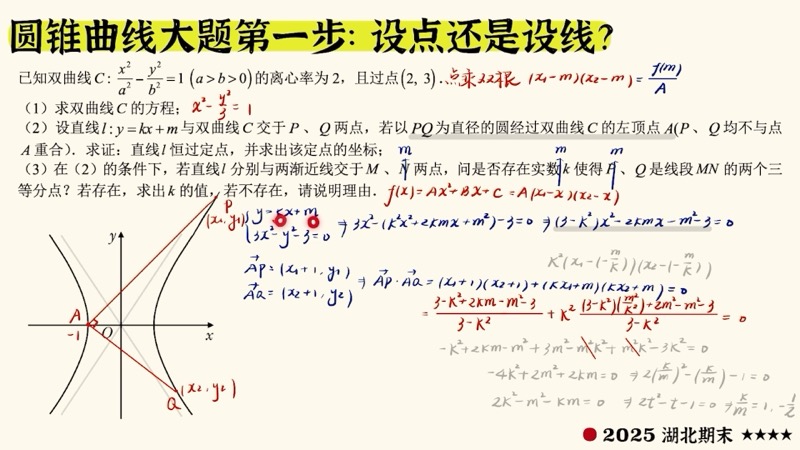 圆锥曲线大题第一步: 设点还是设线?
已知双曲线 C: x²/a² - y²/b² = 1 (a > b > 0) 的离心率为 2，且过点 (2, 3). 点乘双根 (x₁-m)(x₂-m) = f(m)/A
(1) 求双曲线 C 的方程; x² - y²/3 = 1
(2) 设直线 l: y = kx + m 与双曲线 C 交于 P 、Q 两点，若以 PQ 为直径的圆经过双曲线 C 的左顶点 A(P 、Q 均不与点
A 重合). 求证：直线 l 恒过定点，并求出该定点的坐标;
m n m m
(3) 在 (2) 的条件下，若直线 l 分别与两渐近线交于 M 、N 两点，问是否存在实数 k 使得 P 、Q 是线段 MN 的两个三
等分点？若存在，求出 k 的值，若不存在，请说明理由. f(x) = Ax² + Bx + C = A(x₁-x)(x₂-x)
P
(x₁, y₁)
{ y = kx + m
3x² - y² - 3 = 0 ⇒ 3x² - (k²x² + 2kmx + m²) - 3 = 0 ⇒ (3-k²)x² - 2kmx - m² - 3 = 0
k²(x₁-(-m/k))(x₂-(-m/k))
AP = (x₁+1, y₁)
AQ = (x₂+1, y₂) ⇒ AP · AQ = (x₁+1)(x₂+1) + (kx₁+m)(kx₂+m) = 0
= (3-k²+2km-m²-3)/(3-k²) + k² ((3-k²)(m²/k²)+2m²-m²-3)/(3-k²) = 0
-k²+2km-m²+3m²-m²k²+m²k²-3k² = 0
-4k²+2m²+2km = 0 ⇒ 2(k/m)²-(k/m)-1 = 0
2k²-m²-km = 0 ⇒ 2t²-t-1 = 0 ⇒ k/m = 1, -1/2
y
A
-1
O
x
Q (x₂, y₂)
2025 湖北期末 ★★★★